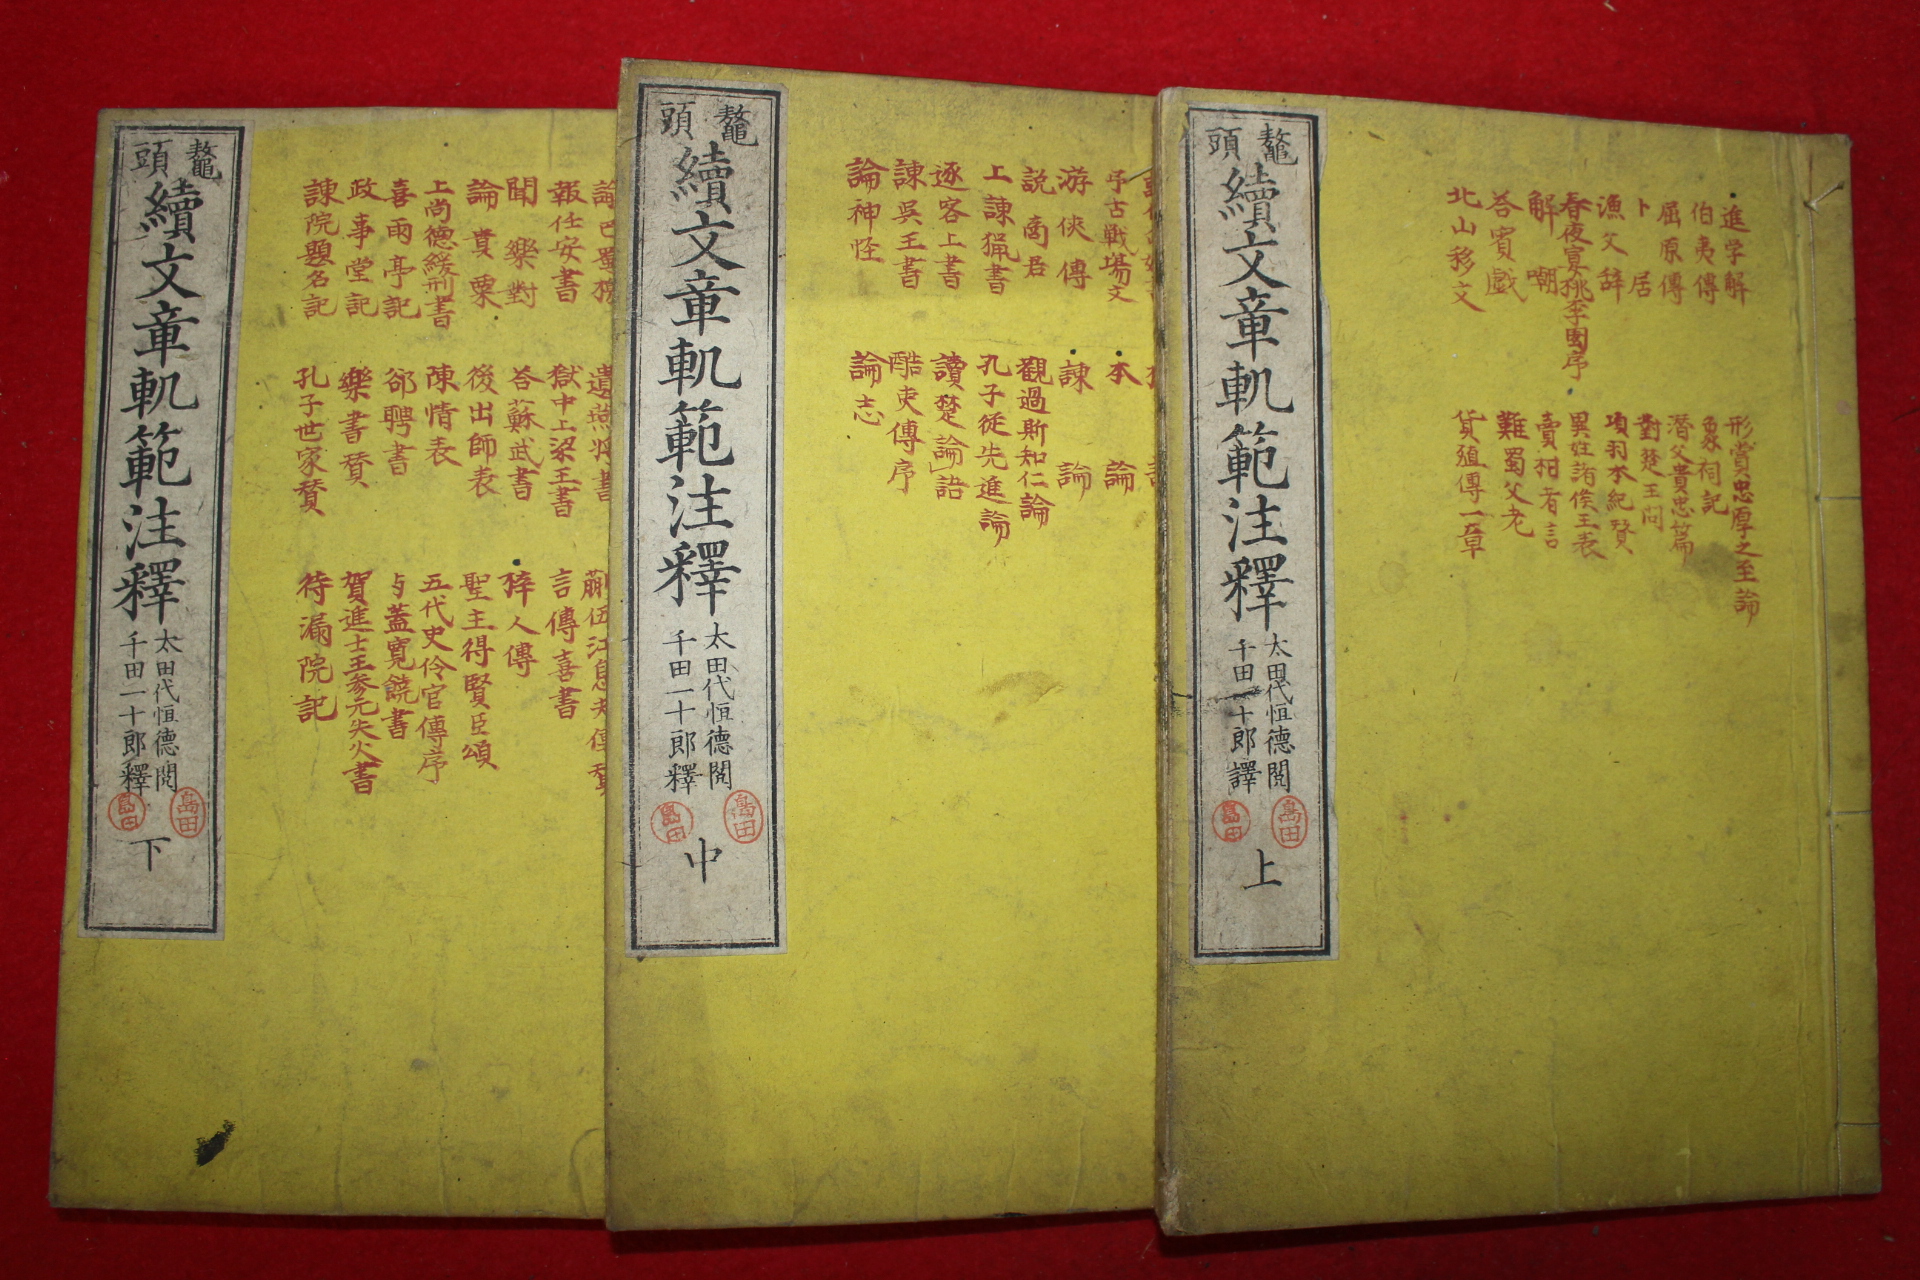 進学解
伯夷傳
屈原傳
卜居
漁父辞
春夜宴桃李園序
解嘲
荅賓戲
北山移文
形賞忠厚之至論
象祠記
潛父貴忠篇
對楚王問
項羽本紀賛
異姓諸侯王表
賣柑者言
難蜀父老
貨殖傳一章
鼇頭
續文章軌範注釋
太田代恒德閲
千田一十郎譯
島田
島田
上
弔古戦場文
游俠傳
説商君
上諌猟書
逐客上書
諌呉王書
論神怪
本論
諌論
觀過斯知仁論
孔子從先進論
讀楚論語
酷吏傳序
論志
鼇頭
續文章軌範注釋
太田代恒德閲
千田一十郎釋
島田
島田
中
報任安書
聞樂對
論貴粟
上尚德緩刑書
喜雨亭記
政事堂記
諌院題名記
遺燕将書
獄中上梁王書
荅蘇武書
後出師表
陳情表
郤聘書
樂書賛
孔子世家賛
蒯伍江息夫傳賛
言傳喜書
梓人傳
聖主得賢臣頌
五代史伶官傳序
与蓋寛饒書
賀進士王参元失火書
待漏院記
鼇頭
續文章軌範注釋
太田代恒德閲
千田一十郎釋
島田
島田
下